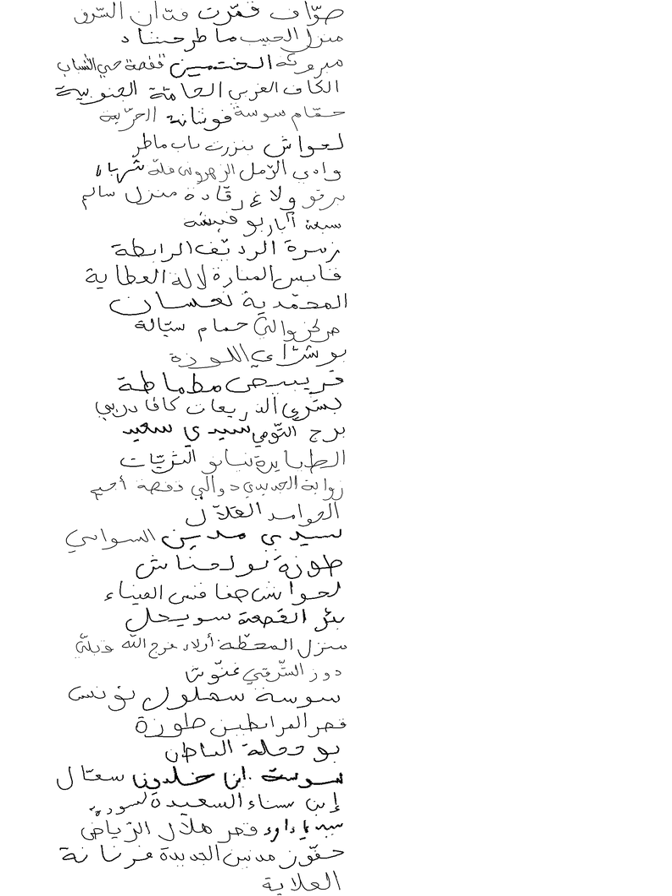 صوّاف قمّرت فتّان الشرق
منزل الحبيب ماطر حشاد
مبروكة الختمين قفصة حي الشباب
الكاف الغربي الحامّة الجنوبية
حمّام سوسة فوشانة الحرّية
لعواش بنزرت باب ماطر
وادي الرّمل الزهروني ملّة شرباك
برقو ولاغ رقّادة منزل سالم
سبعة آبار بو فيشة
زمرة الرديّف الرابطة
قابس المنارة لالة العطاية
المحمّدية نعسان
مركز والي حمام سيّالة
بو شرّاي اللوزة
قريبيص مطماطة
يسّري الذريعات كافا دربي
برج التّومي سيدي سعيد
الطبايرة نيانو الثريّات
زواية الجديدي دوالي قفصة أميم
الحوامد القلاّل
سيدي مدين السواسي
طوزة بو لحناش
لحواش صفاقس الميناء
بئر القصعة سويحل
منزل المحطّة أولاد فرج الله قبلّي
دوز الشّرقي غنّوش
سوسة سهلول تونس
قصر المرابطين طوزة
بو وملة الباطن
سوسة ابن خلدون سعتال
إبن سناء السعيدة
سيدي داود قصر هلال الرّياض
حفّوز مدنين الجديدة فرنانة
العلاية